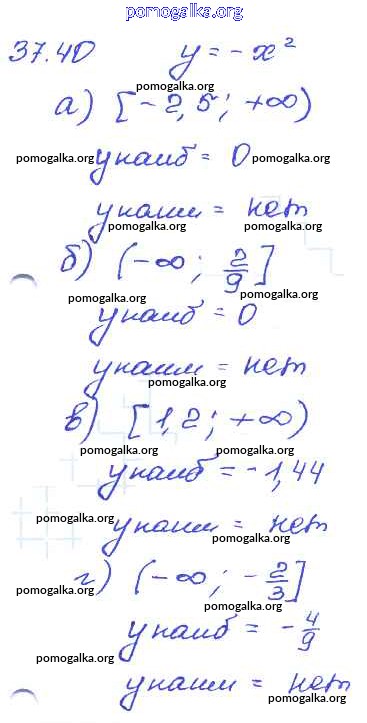 pomogalka.org
37.40 y = -x²
pomogalka.org
а) [-2,5; +∞)
pomogalka.org yнаиб = 0 pomogalka.org
yнаим = нет
pomogalka.org
б) (-∞; 2/9]
pomogalka.org pomogalka.org
yнаиб = 0
yнаим = нет
pomogalka.org
в) [1,2; +∞)
pomogalka.org
yнаиб = -1,44
pomogalka.org
yнаим = нет
pomogalka.org
г) (-∞; -2/3]
pomogalka.org
pomogalka.org
yнаиб = -4/9
pomogalka.org
yнаим = нет